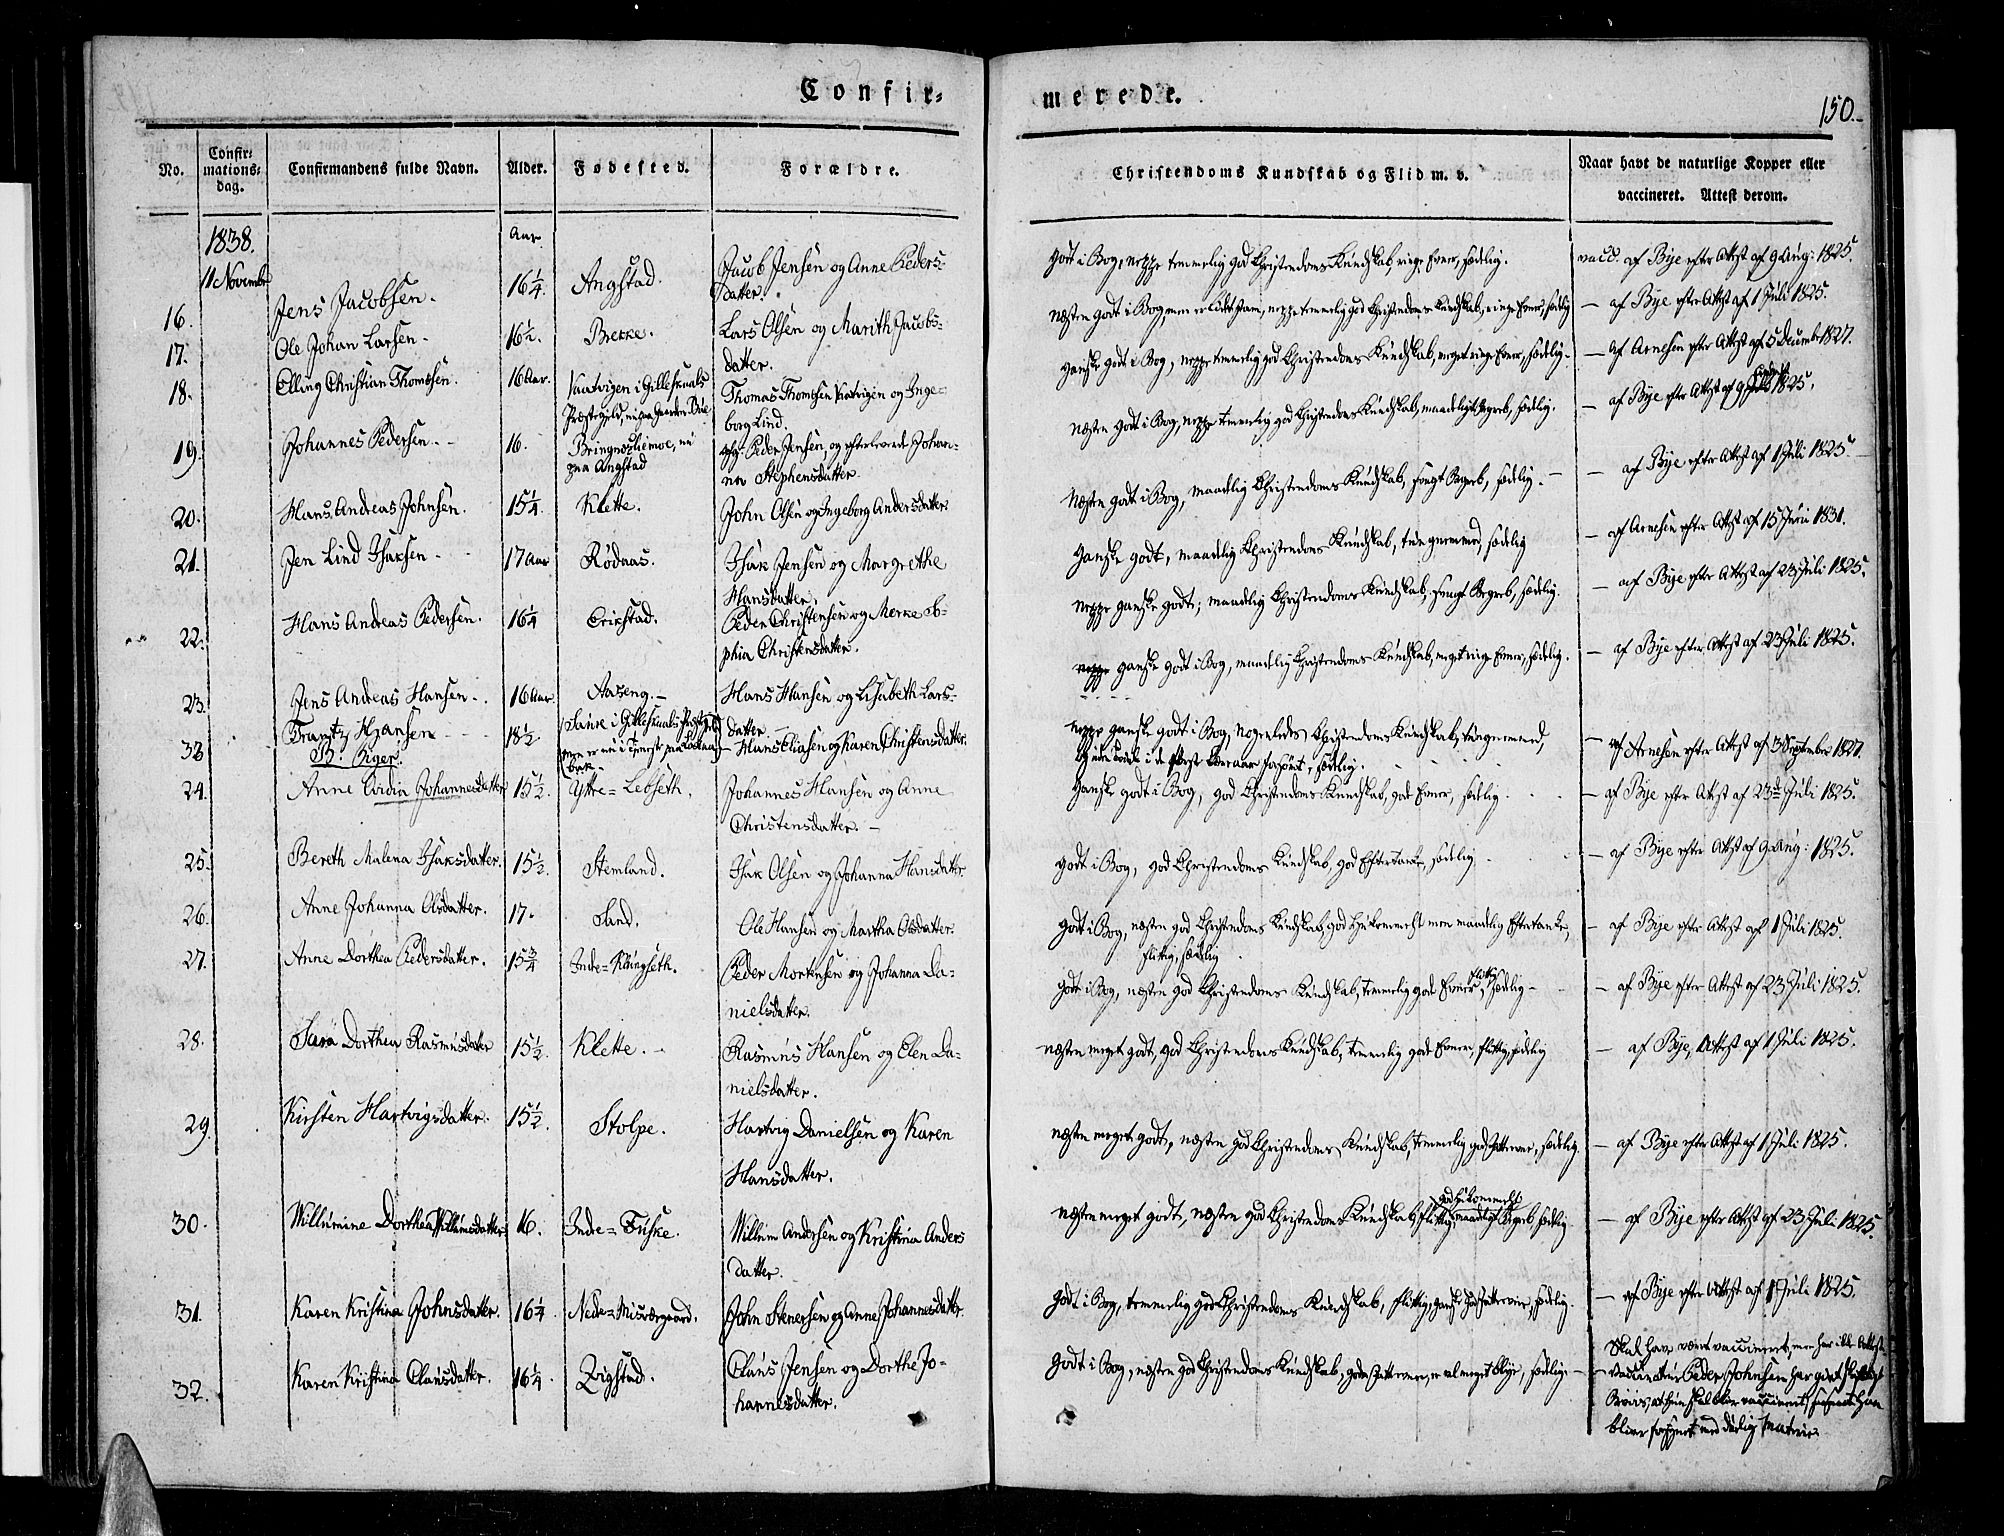 Confir-
merede.
150.
No.
Confir-
mations-
dag.
Confirmandens fulde Navn.
Alder.
Fødested.
Forældre.
Christendoms Kundskab og Flid m. v.
Naar havt de naturlige Kopper eller
vaccineret. Attest derom.
1838.
11 Novembr
Aar
16. Jens Jacobsen. 16 1/4. Angstad. Jacob Jensen og Anne Peders-
datter.
godt i Bog, neppe temmelig god Christendoms Kundskab, ringe Evner, sædelig.
vacc. af Bye efter Attest af 9 Aug: 1825.
17. Ole Johan Larsen. 16 1/2. Brekke. Lars Olsen og Marith Jacobs-
datter.
næsten godt i Bog, men er lidt stam, neppe temmelig god Christendoms Kundskab, ringe Evner, sædelig
— af Bye efter Attest af 1 Juli 1825.
18. Elling Christian Thomsen. 16 Aar. i Gilleskaals
Præstegjeld, nu paa Gaarden
Thomas Thomsen og Inge-
borg Lind.
ganske godt i Bog, neppe temmelig god Christendoms Kundskab, meget ringe Evner, sædelig.
— af Arnesen efter Attest af 5 December 1827.
19. Johannes Pedersen. 16. Bringneshiemoe, nu
paa Angstad
Peder Jensen, og efterlevende Johan-
ne Stephensdatter.
næsten godt i Bog, neppe temmelig god Christendoms Kundskab, maadeligt Begreb, sædelig.
— af Bye efter Attest af 9 1825.
20. Hans Andreas Johnsen. 15 1/4. Klette. John Olsen og Ingeborg Andersdatter.
Næsten godt i Bog, maadelig Christendoms Kundskab, svagt Begreb, sædelig.
— af Bye efter Attest af 1 Juli 1825.
21. Jen Lind Isaksen 17 Aar Rødaas. Isak Jensen og Margrethe
Hansdatter.
Ganske godt, maadelig Christendoms Kundskab, tungnemmed, sædelig
— af Arnesen efter Attest af 15 Juni 1831.
22. Hans Andreas Pedersen. 16 1/4 Erikstad. Peder Christensen og Merke So-
phia Christensdatter.
neppe ganske godt; maadelig Christendoms Kundskab, svagt Begreb, sædelig.
— af Bye efter Attest af 23 Juli 1825.
23. Jens Andreas Hansen. 16 Aar. Aaseng. Hans Hansen og Lisabeth Lars-
datter.
neppe ganske godt i Bog, maadelig Christendoms Kundskab, meget ringe Evner, sædelig.
— af Bye efter Attest af 23 Juli 1825.
33 Frantz Hansen 18 1/2. i Gilleskaals Præstegjeld
men er nu i Tjeneste paa
Hans Eliasen og Karen Christensdatter.
neppe ganske godt i Bog, nogenledes Christendoms Kundskab, tungnemmed,
sædelig.
— af Arnesen efter Attest af 3 September 1827.
B. Piger.
24. Anne Johannesdatter 15 1/2. Yttre-Lebseth. Johannes Hansen og Anne
Christensdatter.
Ganske godt i Bog, god Christendoms Kundskab, gode Evner, sædelig
— af Bye efter Attest af 23de Juli 1825.
25. Bereth Malena Isaksdatter. 15 1/2. Stemland. Isak Olsen og Johanna Hansdatter.
godt i Bog, god Christendoms Kundskab, god Eftertanke, sædelig
— af Bye efter Attest af 9 Aug: 1825.
26. Anne Johanna Olsdatter. 17. Sand. Ole Hansen og Martha Olsdatter.
godt i Bog, næsten god Christendoms Kundskab, god Hukommelse men maadelig Eftertanke,
flittig, sædelig
— af Bye efter Attest af 1 Juli 1825.
27. Anne Dorthea Pedersdatter. 15 3/4 Indre-Klungseth. Peder Mortensen og Johanna Da-
nielsdatter.
godt i Bog, næsten god Christendoms Kundskab, temmelig gode Evner, flittig, sædelig
— af Bye efter Attest af 23 Juli 1825.
28. Sara Dorthea Rasmusdatter 15 1/2. Klette. Rasmus Hansen og Elen Da-
nielsdatter.
næsten meget godt, god Christendoms Kundskab, temmelig gode Evner, flittig, sædelig
— af Bye, Attest af 1 Juli 1825.
29. Kirsten Hartvigsdatter. 15 1/2. Stolpe. Hartvig Danielsen og Karen
Hansdatter.
næsten meget godt, næsten god Christendoms Kundskab, temmelig god Fatteevne, sædelig.
— af Bye efter Attest af 1 Juli 1825.
30. Willumine Dorthea Willumsdatter 16. Indre-Fuske. Willum Andersen og Kristina Anders
datter.
næsten meget godt, næsten god Christendoms Kundskab, flittig, god Hukommelse, maadeligt Begreb, sædelig
— af Bye efter Attest af 23 Juli 1825.
31. Karen Kristina Johnsdatter. 16 1/4. Nedre-Misværgaard. John Stenersen og Anne Johannesdatter.
godt i Bog, temmelig god Christendoms Kundskab, flittig, ganske god Fatteevne, sædelig.
— af Bye efter Attest af 1 Juli 1825.
32. Karen Kristina Clausdatter. 16 1/4. Zigstad. Claus Jensen og Dorthe Jo-
hannesdatter.
godt i Bog, næsten god Christendoms Kundskab, gode Fatteevner, er vel meget blye, sædelig.
Skal have været vaccineret, men har ikke Attest.
Vaccinateur Peder Johnsen har givet skriftligt
Beviis, at hun skal blive vaccineret, han
bliver forsynet med dyelig Materie.